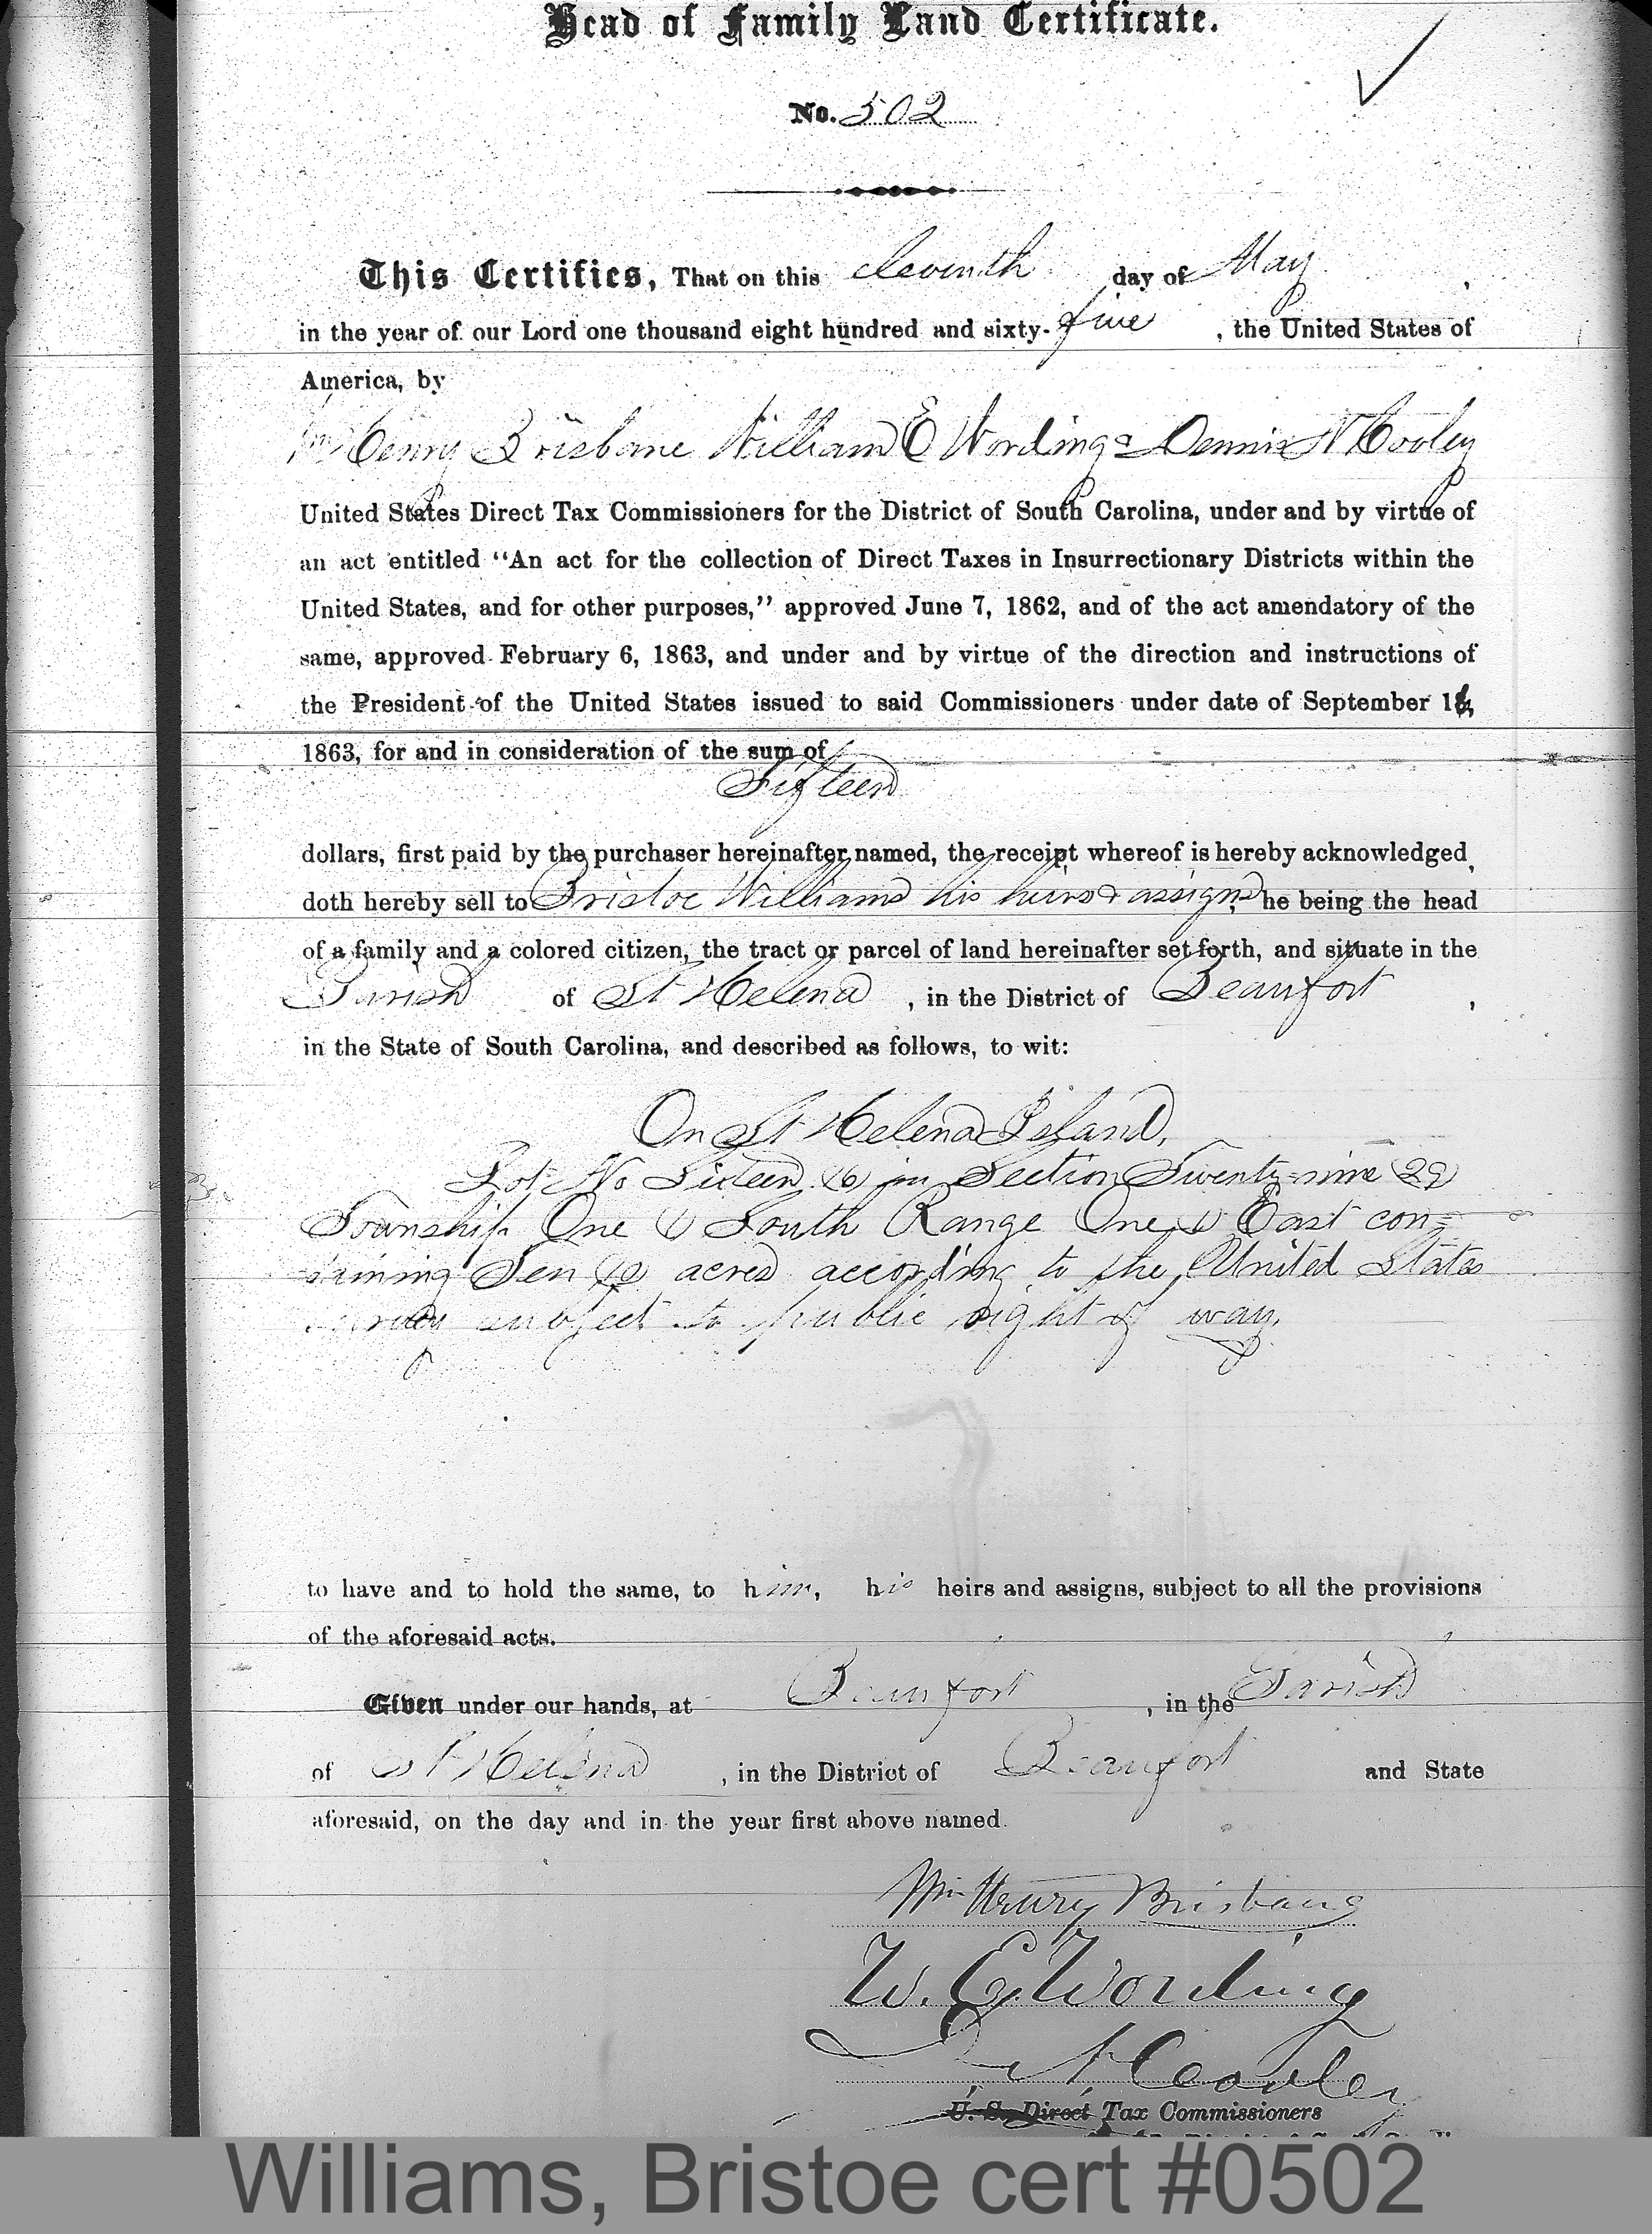 Head of Family Land Certificate.
No. 502
This Certifies, That on this eleventh day of May,
in the year of our Lord one thousand eight hundred and sixty-five, the United States of
America, by
Wm Henry Brisbane William E Wording & Dennis N Cooley
United States Direct Tax Commissioners for the District of South Carolina, under and by virtue of
an act entitled “An act for the collection of Direct Taxes in Insurrectionary Districts within the
United States, and for other purposes,” approved June 7, 1862, and of the act amendatory of the
same, approved February 6, 1863, and under and by virtue of the direction and instructions of
the President of the United States issued to said Commissioners under date of September
1863, for and in consideration of the sum of
Fifteen
dollars, first paid by the purchaser hereinafter named, the receipt whereof is hereby acknowledged,
doth hereby sell to Bristoe Williams his heirs & assigns, he being the head
of a family and a colored citizen, the tract or parcel of land hereinafter set forth, and situate in the
Parish of St Helena, in the District of Beaufort,
in the State of South Carolina, and described as follows, to wit:
On St Helena Island,
Lot No Sixteen (16) in Section Twenty-nine (29)
Township One (1) South Range One (1) East con-
taining Ten (10) acres according to the United States
survey subject to public right of way.
to have and to hold the same, to him, his heirs and assigns, subject to all the provisions
of the aforesaid acts.
Given under our hands, at Beaufort, in the Parish
of St Helena, in the District of Beaufort and State
aforesaid, on the day and in the year first above named.
Wm Henry Brisbane
W. E. Wording
D N Cooley
U. S. Direct Tax Commissioners
Williams, Bristoe cert #0502